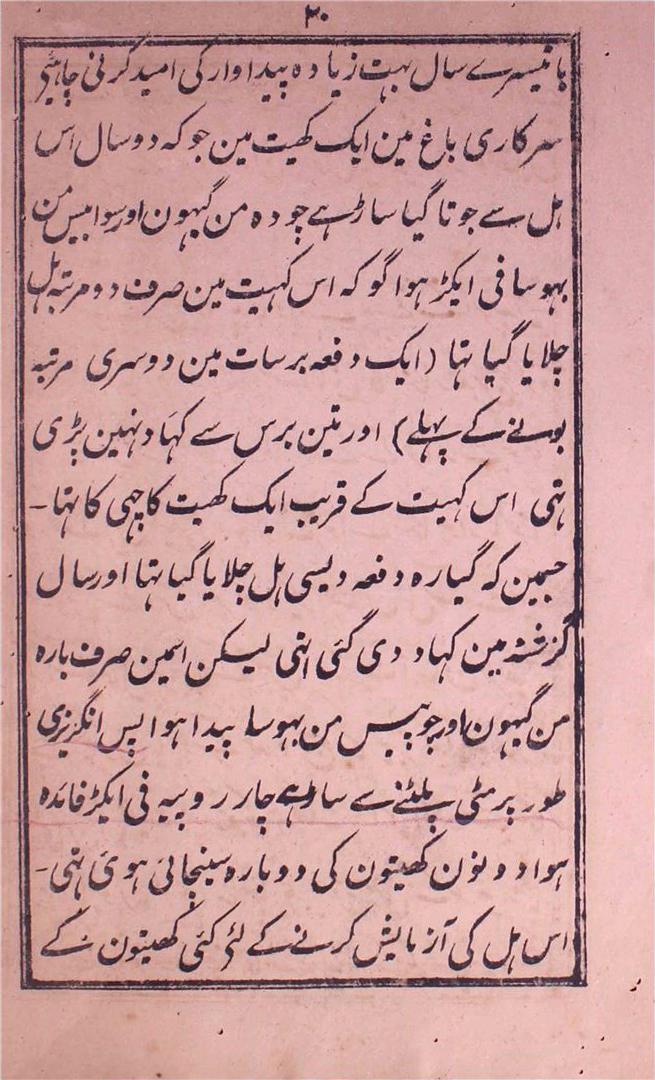 ۲۰
یا تیسرے سال بہت زیادہ پیداوار کی امید کرنی چاہئیے
سرکاری باغ مین ایک کھیت مین جوکہ دو سال اس
ہل سے جوتا گیا ساڑہے چودہ من گیہون اور سوا بیس من
بہوسا فی ایکڑ ہوا گو کہ اس کہیت مین صرف دو مرتبہ ہل
چلایا گیا تہا (ایک دفعہ برسات مین دوسری مرتبہ
بونے کے پہلے) اور تین برس سے کہاد نہین پڑی
تہی اس کہیت کے قریب ایک کھیت کاچہی کا تہا۔
جسمین کہ گیارہ دفعہ دیسی ہل چلایا گیا تہا اور سال
گزشتہ مین کہاد دی گئی تہی لیکن اسمین صرف بارہ
من گیہون اور چوبیس من بہوسا پیدا ہوا پس انگریزی
طور پر مٹی پلٹنے سے ساڑہے چار روپیہ فی ایکڑ فائدہ
ہوا دونون کھیتون کی دوبارہ سینچائی ہوئ تہی۔
اس ہل کی آزمایش کرنے کے لئے کئی کھیتون کے